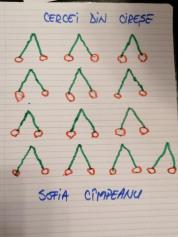 CERCEI DIN CIREȘE
SOFIA CÎMPEANU